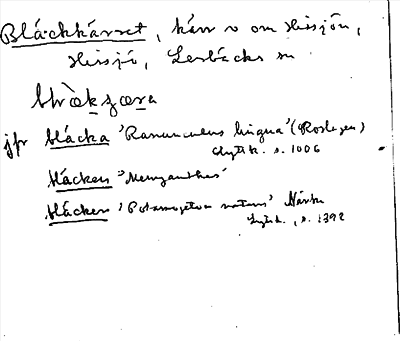 Bläckkärret, kärr v om Hissjön,
Hissjö, Lerbäcks sn
jfr bläcka 'Ranunculus lingua' (Roslagen)
Lyttk. s. 1006
bläcken 'Menyanthes'
bläcken 'Potamogeton natans' Närke
Lyttk., s. 1392